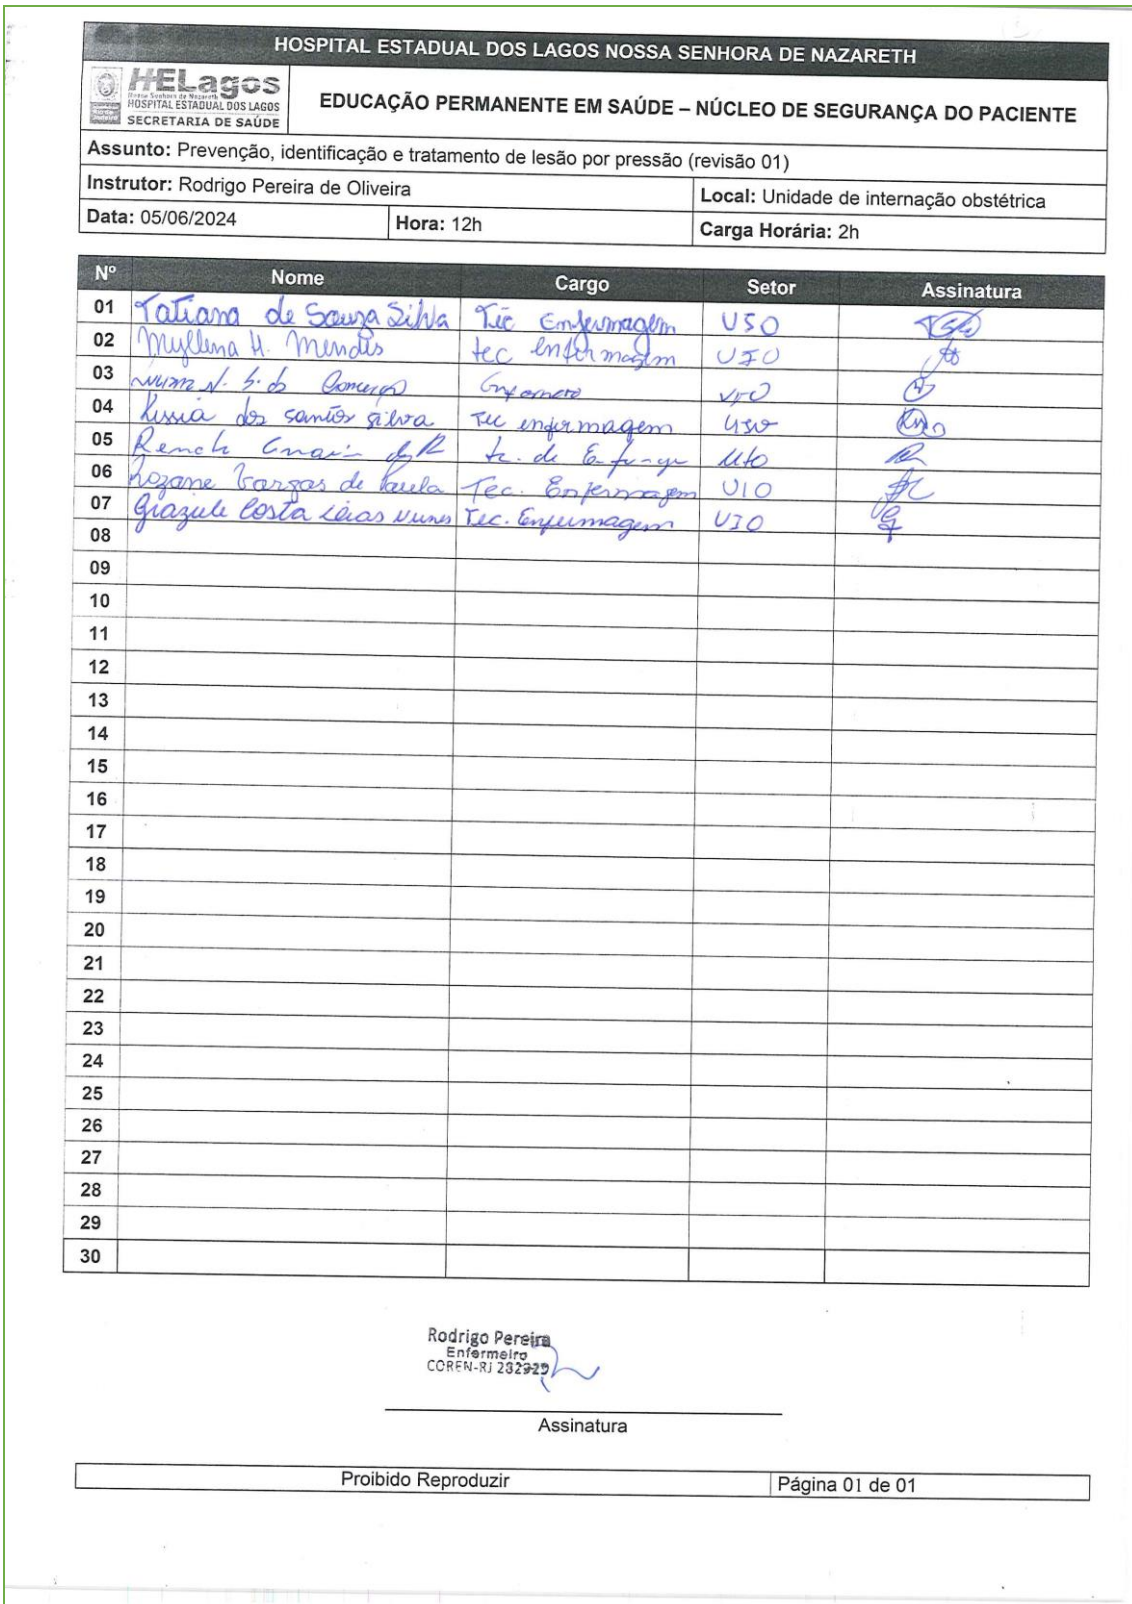 HOSPITAL ESTADUAL DOS LAGOS NOSSA SENHORA DE NAZARETH
HELagos
Nossa Senhora de Nazareth
HOSPITAL ESTADUAL DOS LAGOS
SECRETARIA DE SAÚDE
EDUCAÇÃO PERMANENTE EM SAÚDE – NÚCLEO DE SEGURANÇA DO PACIENTE
Assunto: Prevenção, identificação e tratamento de lesão por pressão (revisão 01)
Instrutor: Rodrigo Pereira de Oliveira Local: Unidade de internação obstétrica
Data: 05/06/2024 Hora: 12h Carga Horária: 2h
Nº Nome Cargo Setor Assinatura
01 Tatiana de Souza Silva Tec Enfermagem
02 Myllena H. Mendes tec enfermagem UIO
03
04 dos santos silva Tec enfermagem
05
06 Rozane Vargas de Paula Tec. Enfermagem UIO
07 Costa Nunes Tec. Enfermagem UIO
08
09
10
11
12
13
14
15
16
17
18
19
20
21
22
23
24
25
26
27
28
29
30
Rodrigo Pereira
Enfermeiro
COREN-RJ
Assinatura
Proibido Reproduzir Página 01 de 01